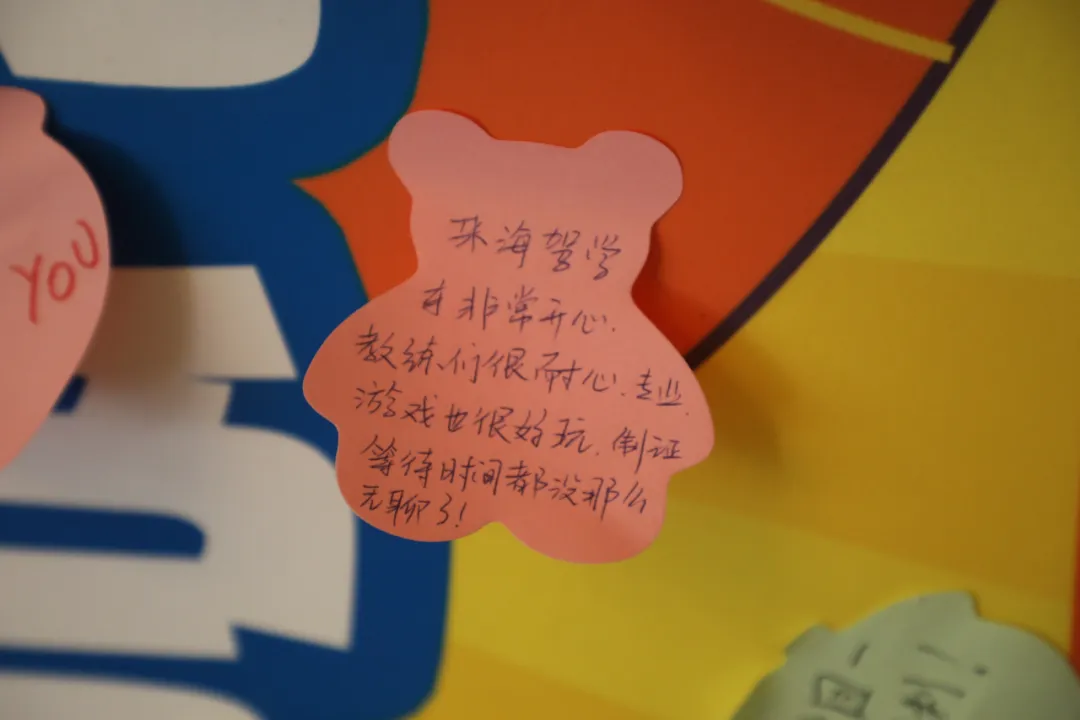 YOU
珠海驾学
车非常开心.
教练们很耐心.专业.
游戏也很好玩.制证
等待时间都没那么
无聊了!